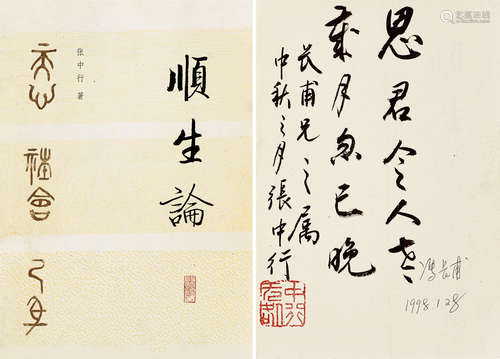 張中行 著
順生論
天心
社會
己身
思君令人老
歲月忽已晚
長甫兄之属
中秋之月張中行
馮長甫
1998.1.28